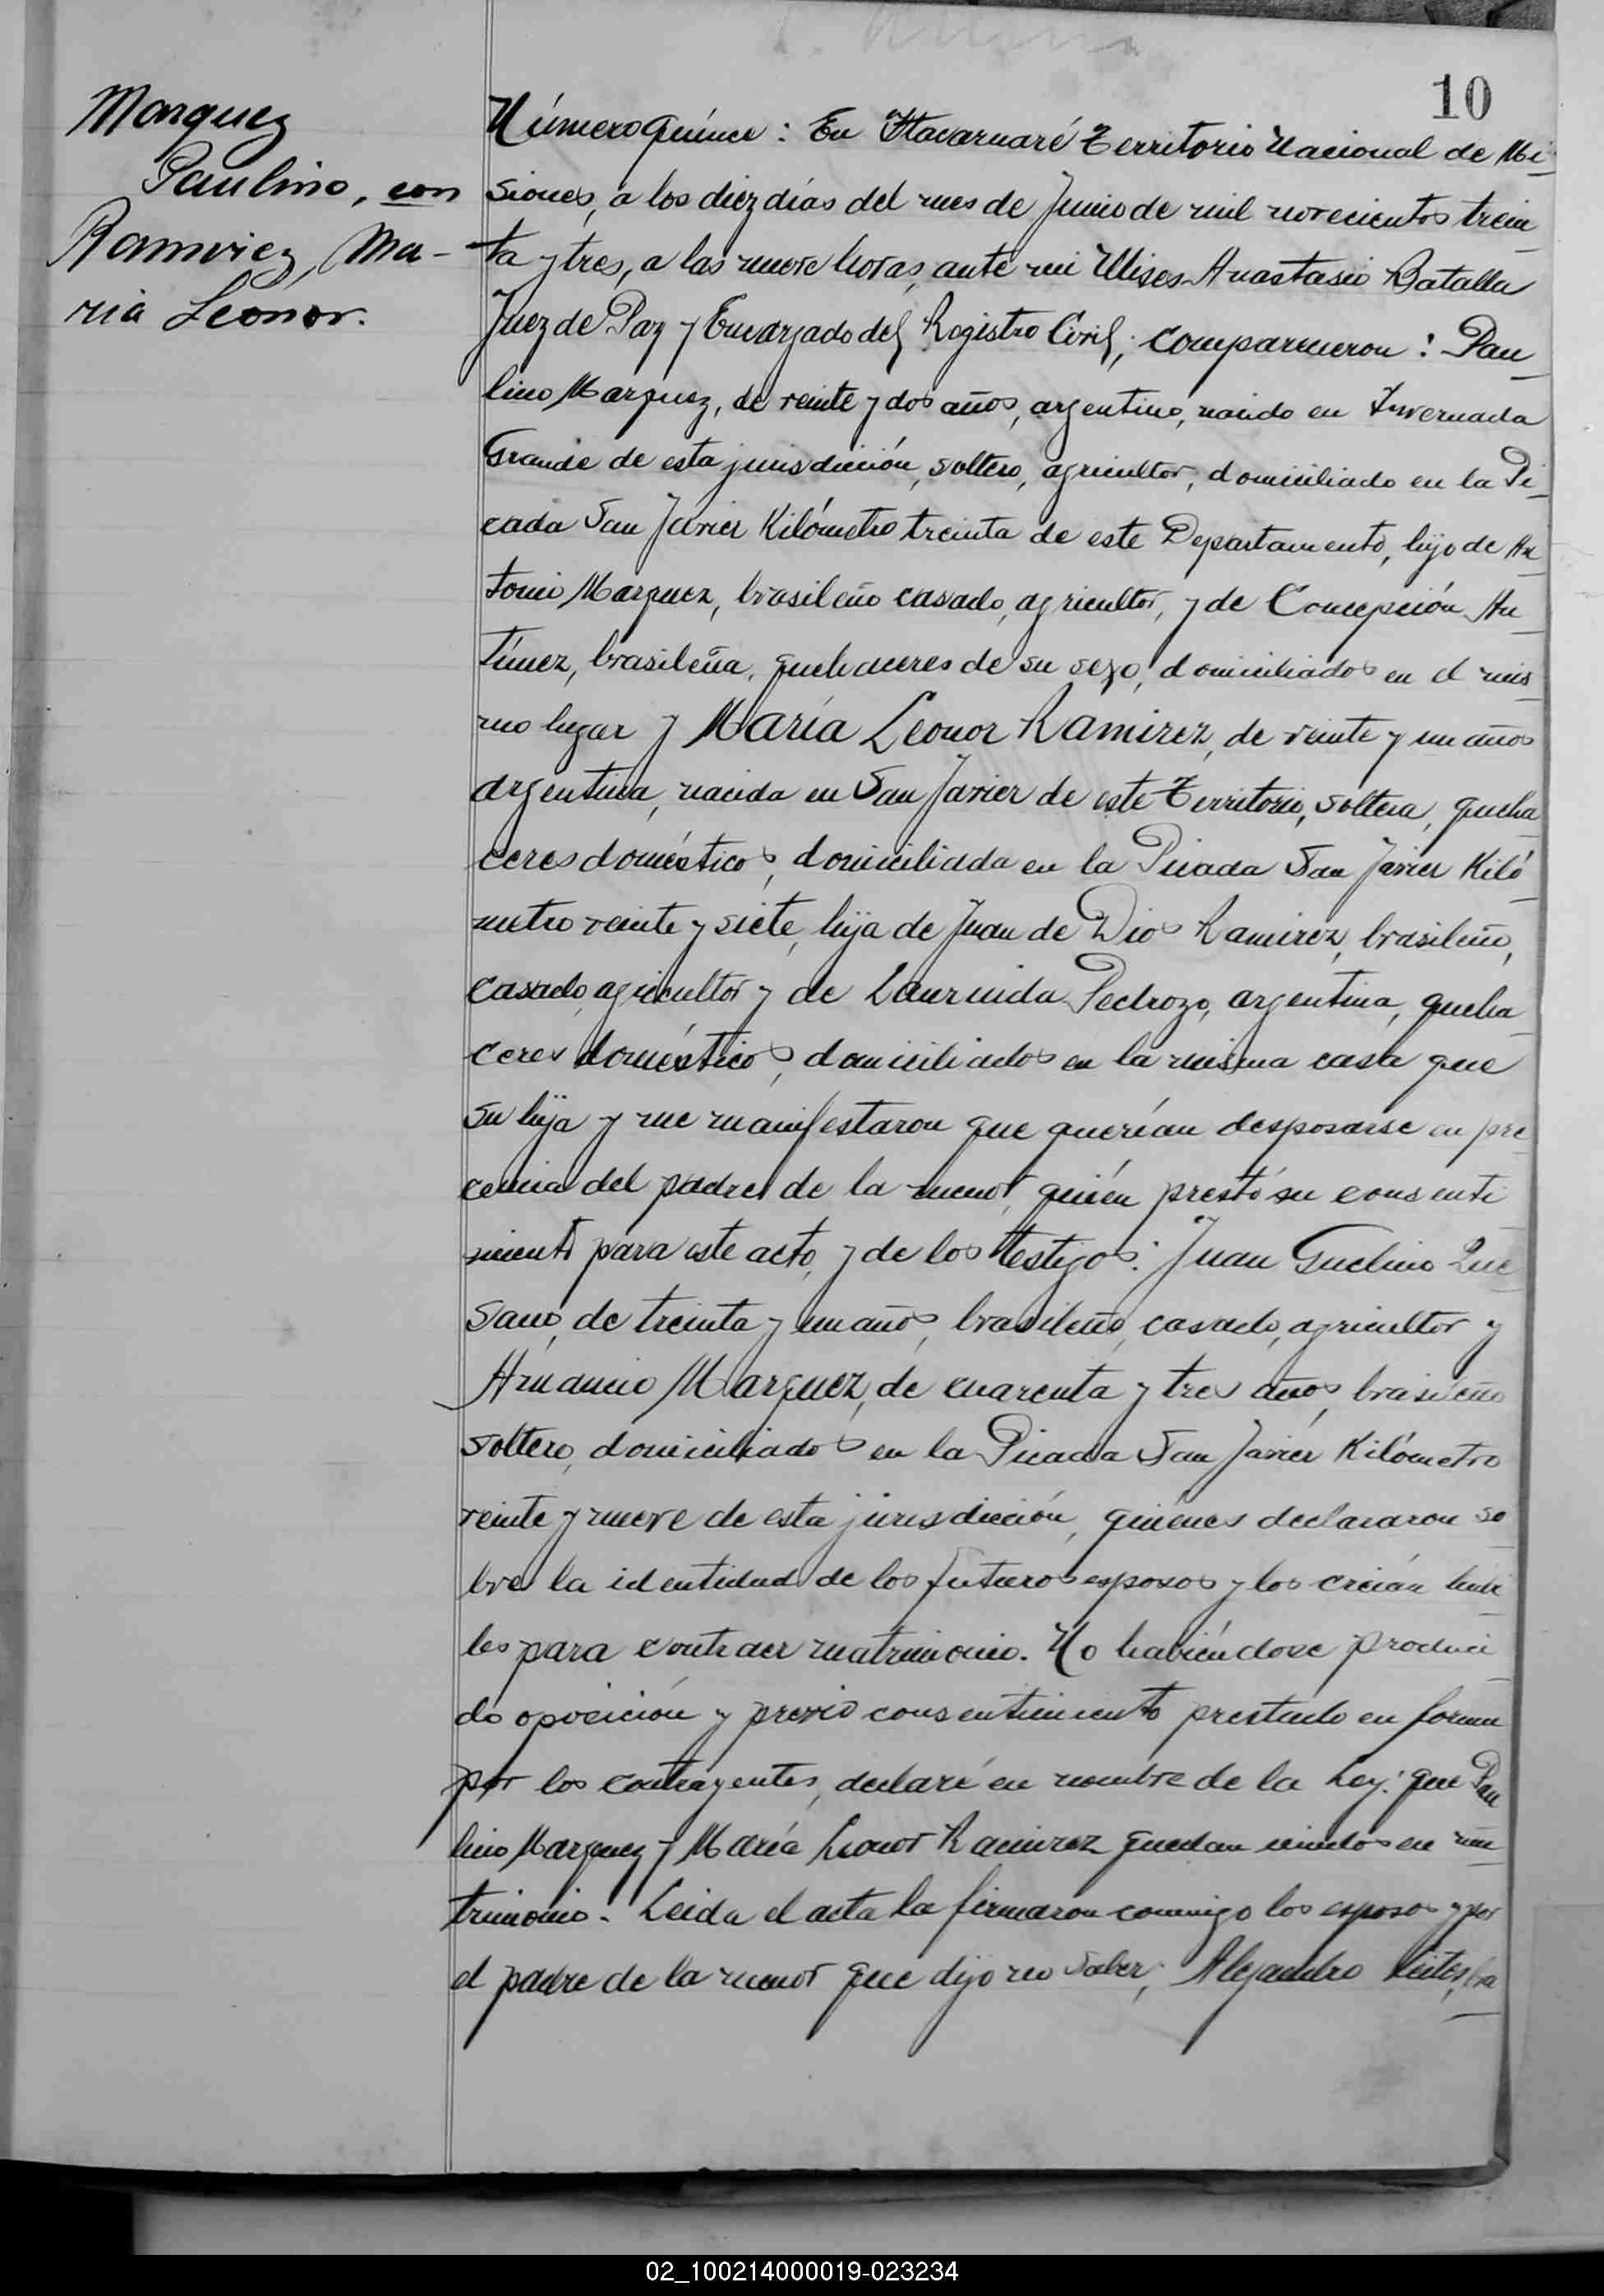 10
Marquez
Paulino, con
Ramirez, Ma-
ria Leonor.
Número quince: En Itacaruaré Territorio Nacional de Mi-
siones, a los diez días del mes de Junio de mil novecientos trein-
ta y tres, a las nueve horas, ante mi Ulises Anastasio Batalla
Juez de Paz y Encargado del Registro Civil; comparecieron: Pau-
lino Marquez, de veinte y dos años, argentino, nacido en Invernada
Grande de esta jurisdicción, soltero, agricultor, domiciliado en la Pi-
cada San Javier Kilómetro treinta de este Departamento, hijo de An-
tonio Marquez, brasileño casado, agricultor, y de Concepción An-
túnez, brasileña, quehaceres de su sexo, domiciliados en el mis-
mo lugar y María Leonor Ramirez, de veinte y un años
argentina, nacida en San Javier de este Territorio, soltera, queha-
ceres domésticos, domiciliada en la Picada San Javier Kiló-
metro veinte y siete, hija de Juan de Dios Ramirez, brasileño,
casado, agricultor y de Laurinda Pedrozo, argentina, queha-
ceres domésticos, domiciliados en la misma casa que
su hija y me manifestaron que querían desposarse en pre-
cencia del padre de la menor, quién prestó su consenti-
miento para este acto, y de los testigos: Juan
de treinta y un años, brasileño, casado, agricultor y
Marquez, de cuarenta y tres años, brasileño
soltero, domiciliados en la Picada San Javier Kilómetro
veinte y nueve de esta jurisdicción, quiénes declararon so-
bre la identidad de los futuros esposos y los creían hábi-
les para contraer matrimonio. No habiéndose produci-
do oposición y previo consentimiento prestado en forma
por los contrayentes, declaré en nombre de la Ley: que Pau-
lino Marquez y María Leonor Ramirez quedan unidos en ma-
trimonio. Leida el acta la firmaron conmigo los esposos y por
el padre de la menor que dijo no saber, Alejandro
02_100214000019-023234